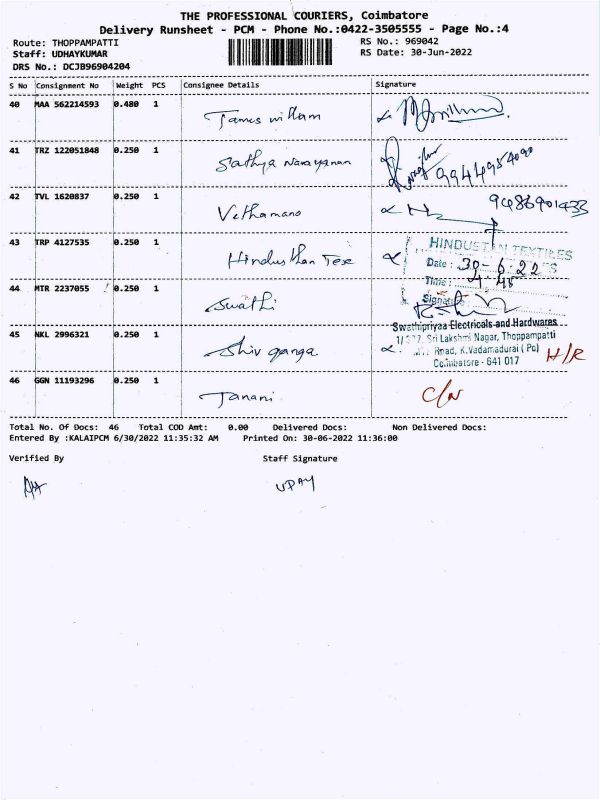 THE PROFESSIONAL COURIERS, Coimbatore
Delivery Runsheet - PCM - Phone No.:0422-3505555 - Page No.:4
Route: THOPPAMPATTI RS No.: 969042
Staff: UDHAYKUMAR RS Date: 30-Jun-2022
DRS No.: DCJB96904204
S No Consignment No Weight PCS Consignee Details Signature
40 MAA 562214593 0.480 1 James william
41 TRZ 122051848 0.250 1 Sathya Narayanan 9944954090
42 TVL 1620837 0.250 1 Vethamano 9486901433
43 TRP 4127535 0.250 1 Hindusthan Tex
HINDUSTAN TEXTILES
Date : 30-6-22
Time : 4.45
Signature
44 MTR 2237055 0.250 1 Swathi
Swathipriyaa Electricals and Hardwares
1/377, Sri Lakshmi Nagar, Thoppampatti
Road, K.Vadamadurai (Po)
Coimbatore - 641 017
45 NKL 2996321 0.250 1 Shiv ganga H/R
46 GGN 11193296 0.250 1 Janani
Total No. Of Docs: 46 Total COD Amt: 0.00 Delivered Docs: Non Delivered Docs:
Entered By :KALAIPCM 6/30/2022 11:35:32 AM Printed On: 30-06-2022 11:36:00
Verified By Staff Signature